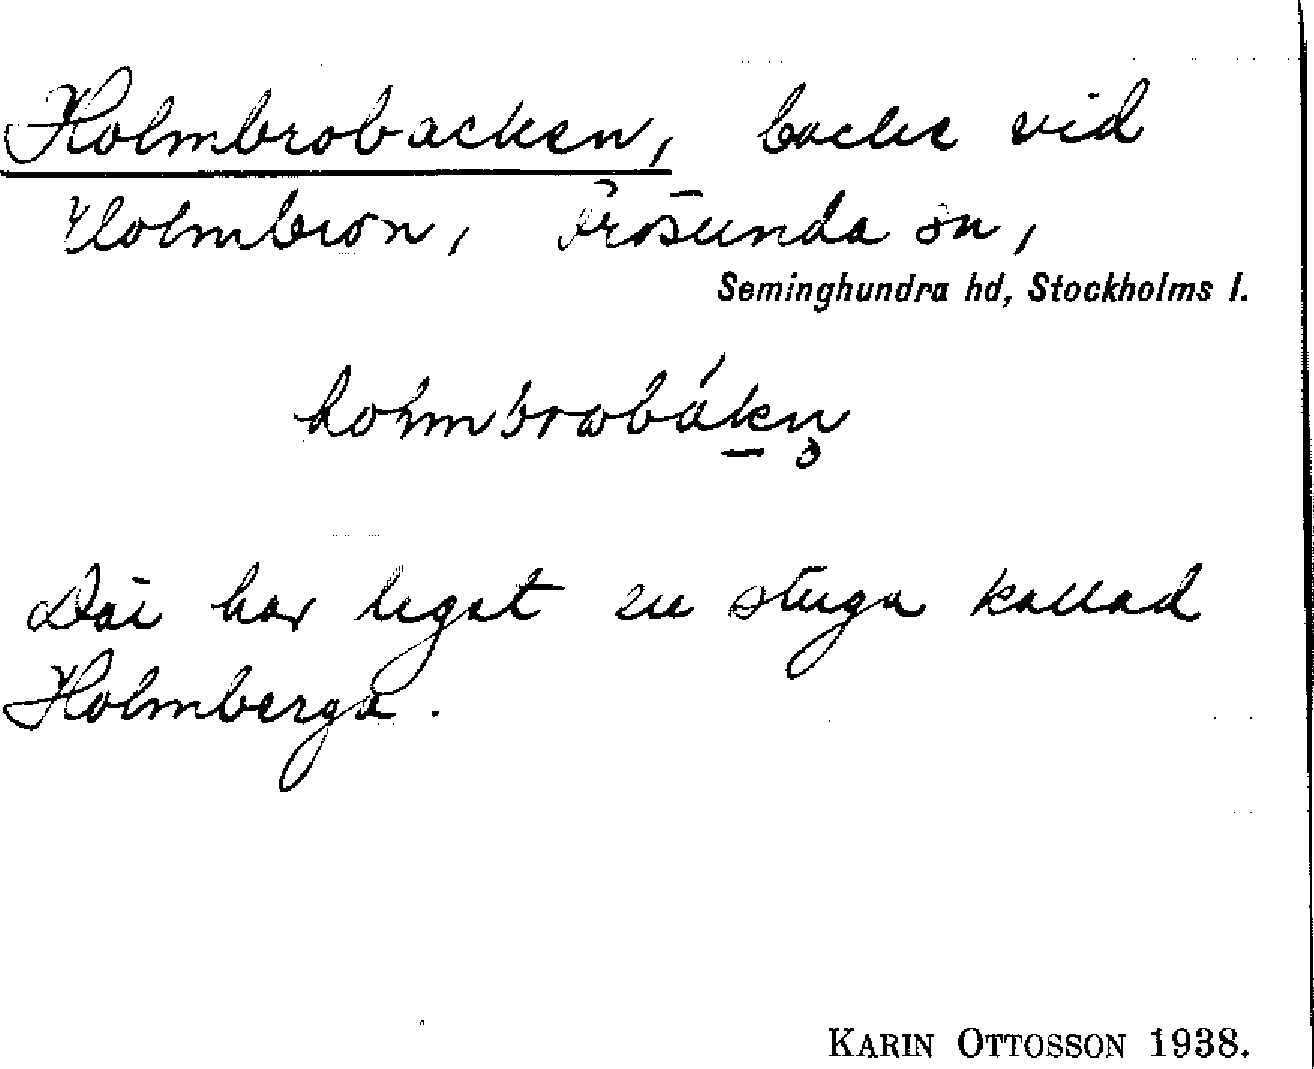 Holmbrobacken, backe vid
Holmbron, Frösunda sn,
Seminghundra hd, Stockholms l.
Där har legat en stuga kallad
Holmberga.
KARIN OTTOSSON 1938.